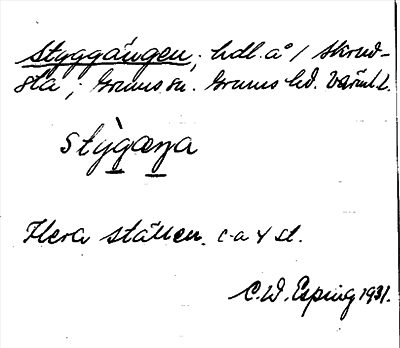 Styggängen; hdl. å / Skrud-
sta; Grums sn. Grums hd. Värml. l.
stỳgæŋa
Flera ställen. c-a 4 st.
C.W. Esping 1931.